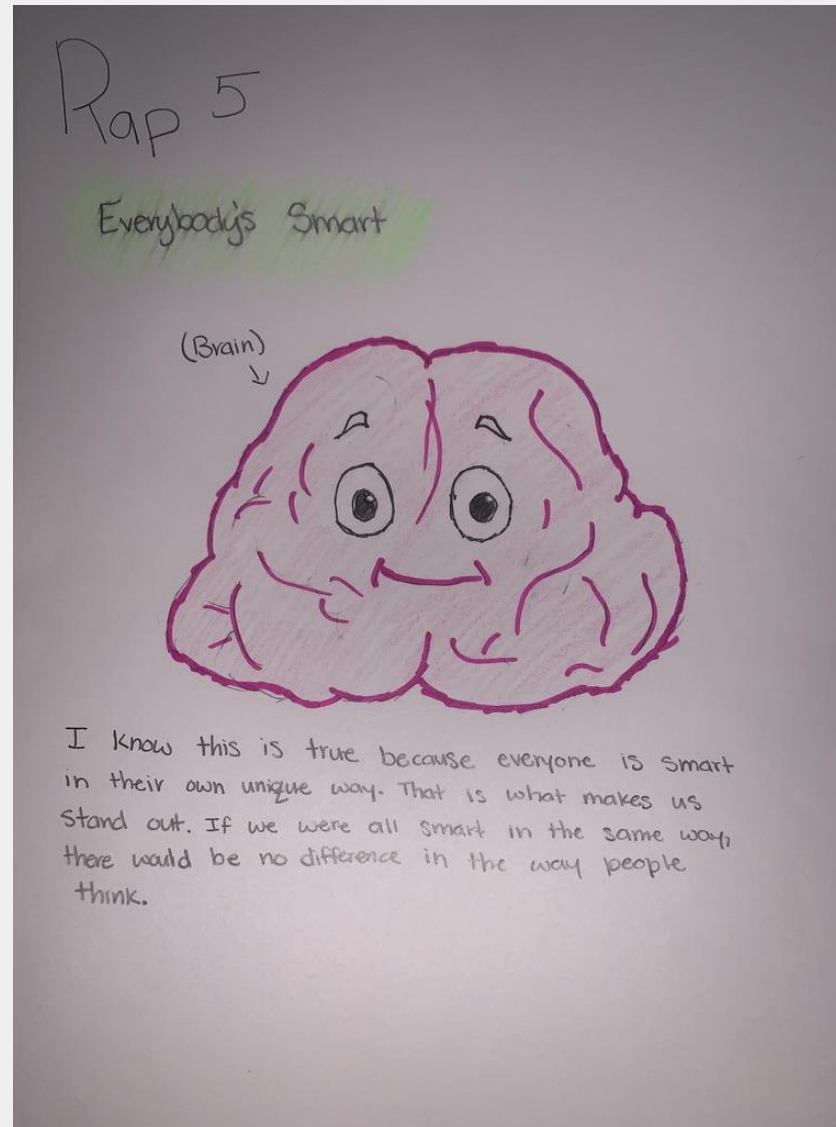 Rap 5
Everybody's Smart
(Brain)
I know this is true because everyone is smart
in their own unique way. That is what makes us
stand out. If we were all smart in the same way,
there would be no difference in the way people
think.